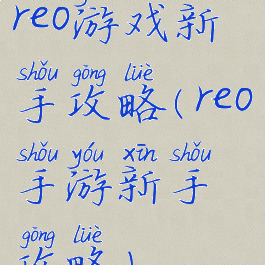 reo游戏新
shǒu gōng lüè
手攻略(reo
shǒu yóu xīn shǒu
手游新手
gōng lüè
攻略)